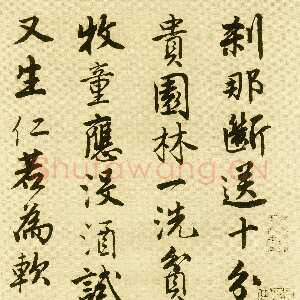 刹那斷送十分
貴園林一洗貧
牧童應没酒試
又生仁若為軟
Shufawang.CN